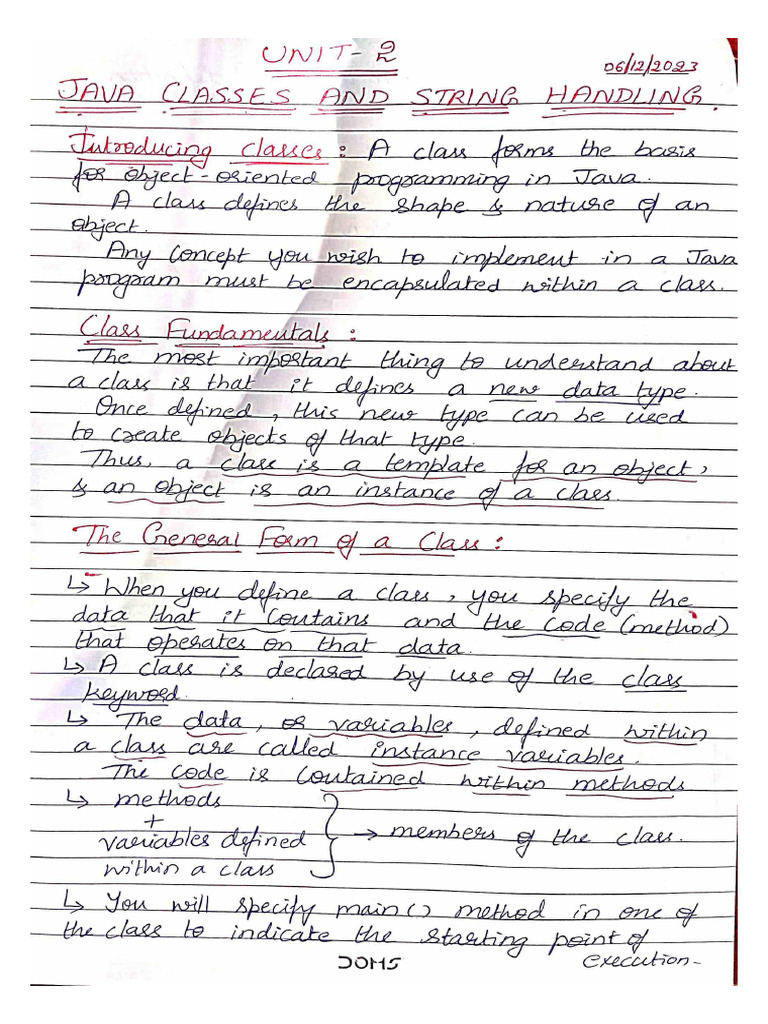 UNIT-2
06/12/2023
JAVA CLASSES AND STRING HANDLING.
Introducing classes: A class forms the basis
for object-oriented programming in Java.
A class defines the shape & nature of an
object.
Any concept you wish to implement in a Java
program must be encapsulated within a class.
Class Fundamentals:
The most important thing to understand about
a class is that it defines a new data type.
Once defined, this new type can be used
to create objects of that type.
Thus, a class is a template for an object,
& an object is an instance of a class.
The General Form of a Class:
↳ When you define a class, you specify the
data that it contains and the code (method)
that operates on that data.
↳ A class is declared by use of the class
keyword.
↳ The data, or variables, defined within
a class are called instance variables.
The code is contained within methods
↳ methods
+
variables defined
within a class
→ members of the class.
↳ You will specify main() method in one of
the class to indicate the starting point of
execution-
DOMS